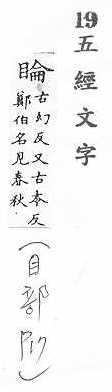 19五經文字
睔
古幻反又古本反
鄭伯名見春秋
(目部P17)